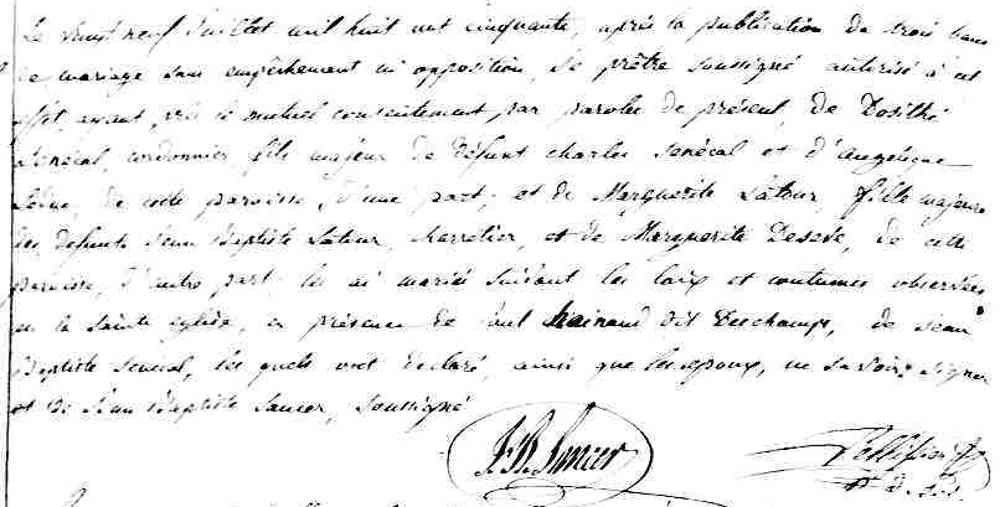 Le vingt neuf Juillet mil huit cent cinquante, après la publication de trois bans
de mariage sans empêchement ni opposition, Je prêtre soussigné autorisé à cet
effet, ayant pris le mutuel consentement par paroles de présent, de Dosithé
Senécal, cordonnier, fils majeur de défunt charles Senécal et d'Angelique
de cette paroisse, d'une part; et de Marguerite Latour, fille majeure
des défunts Jean Baptiste Latour, charretier, et de Marguerite Desève, de cette
paroisse, d'autre part; les ai mariés suivant les loix et coutumes observées
en la Sainte église, en présence de Paul hainaud dit Deschamps, de Jean
Baptiste Senécal, les quels ont déclaré, ainsi que les epoux, ne savoir signer
et de Jean Baptiste Sancer, soussigné
J. B. Sancer